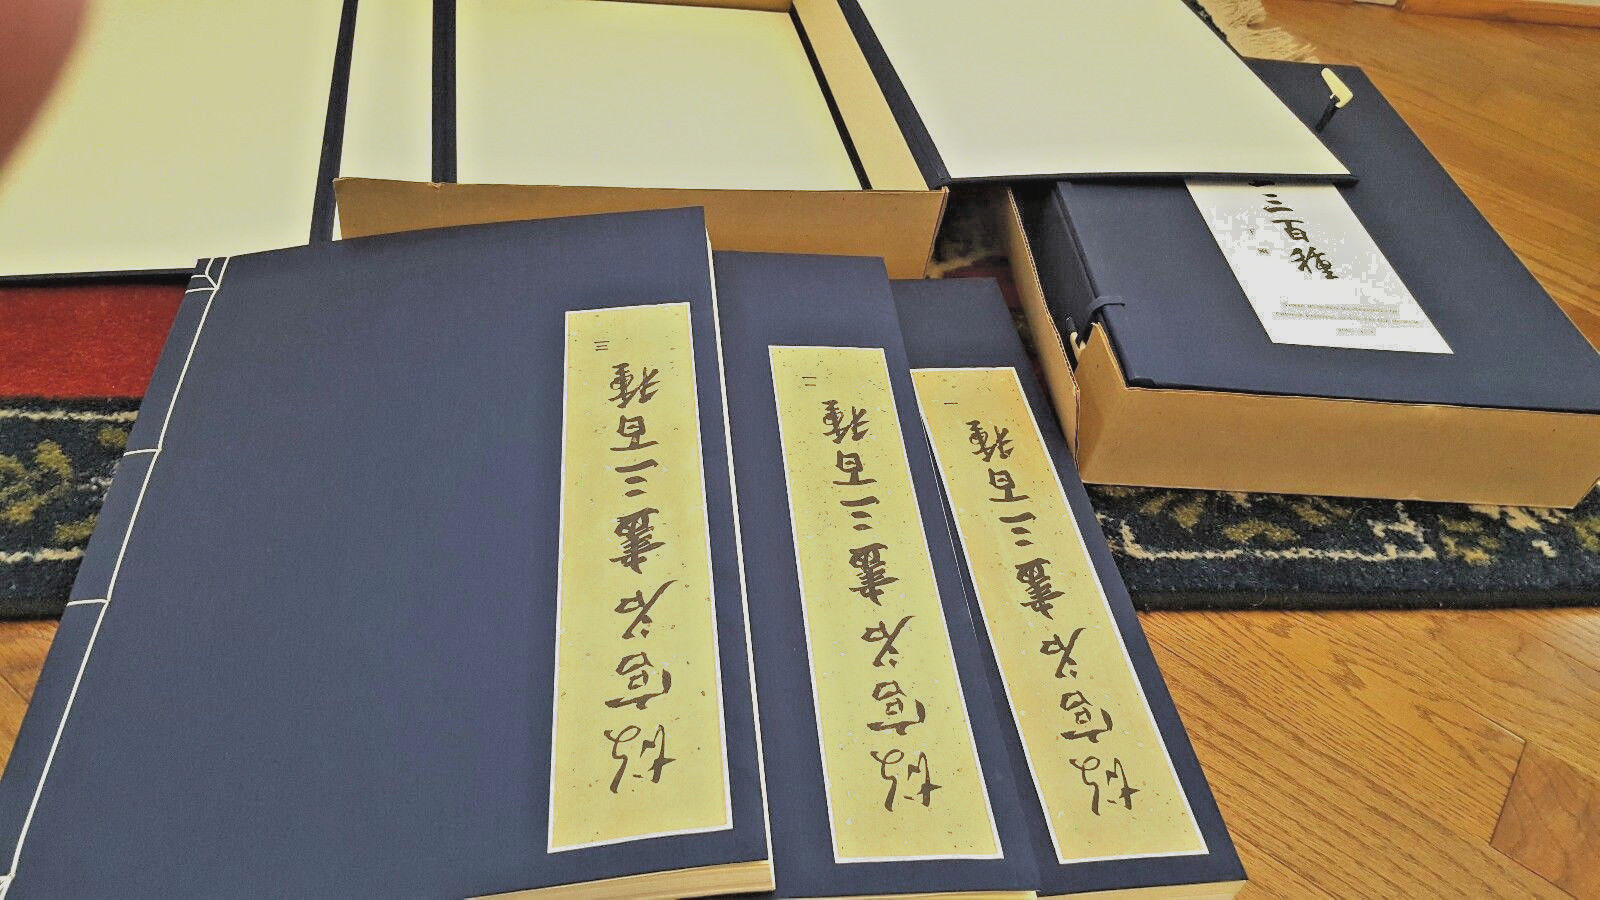 故宮名畫三百種 三
故宮名畫三百種 二
故宮名畫三百種 一
三百種